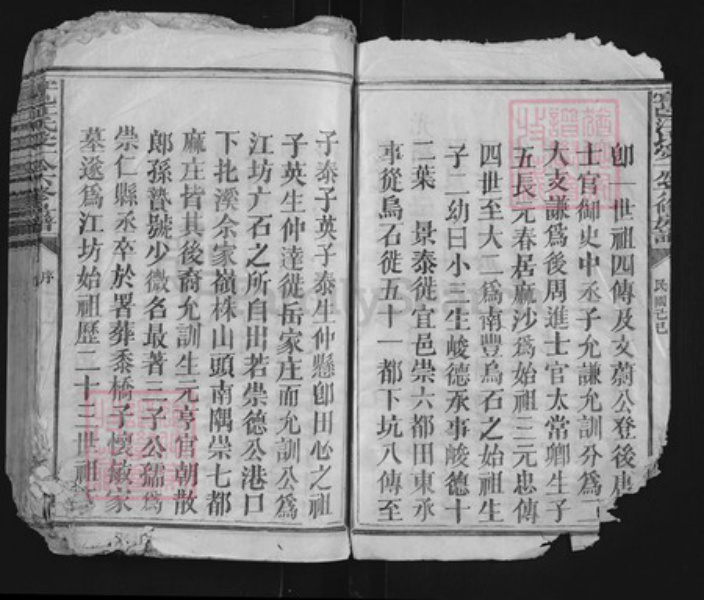 卽一世祖四傳及文蔚公登後唐
士官御史中丞子允謙允訓分爲二
大支謙爲後周進士官太常卿生子
五長元春居麻沙爲始祖三元忠傳
四世至大二爲南豐烏石之始祖生
子二幼曰小三生峻德承事峻德十
二葉 景泰徙宜邑崇六都田東承
事從烏石徙五十一都下坑八傳至
民國己巳
子泰子英子泰生仲懸卽田心之祖
子英生仲達徙岳家庄而允訓公爲
江坊广石之所自出若崇德公港口
下圠溪余家嶺株山頭南隅崇七都
麻庄皆其後裔允訓生元亨官朝散
郎孫贄號少微名最著三子公孺爲
崇仁縣丞卒於署葬黍橋子懷敏家
墓遂爲江坊始祖歷二十三世祖
序